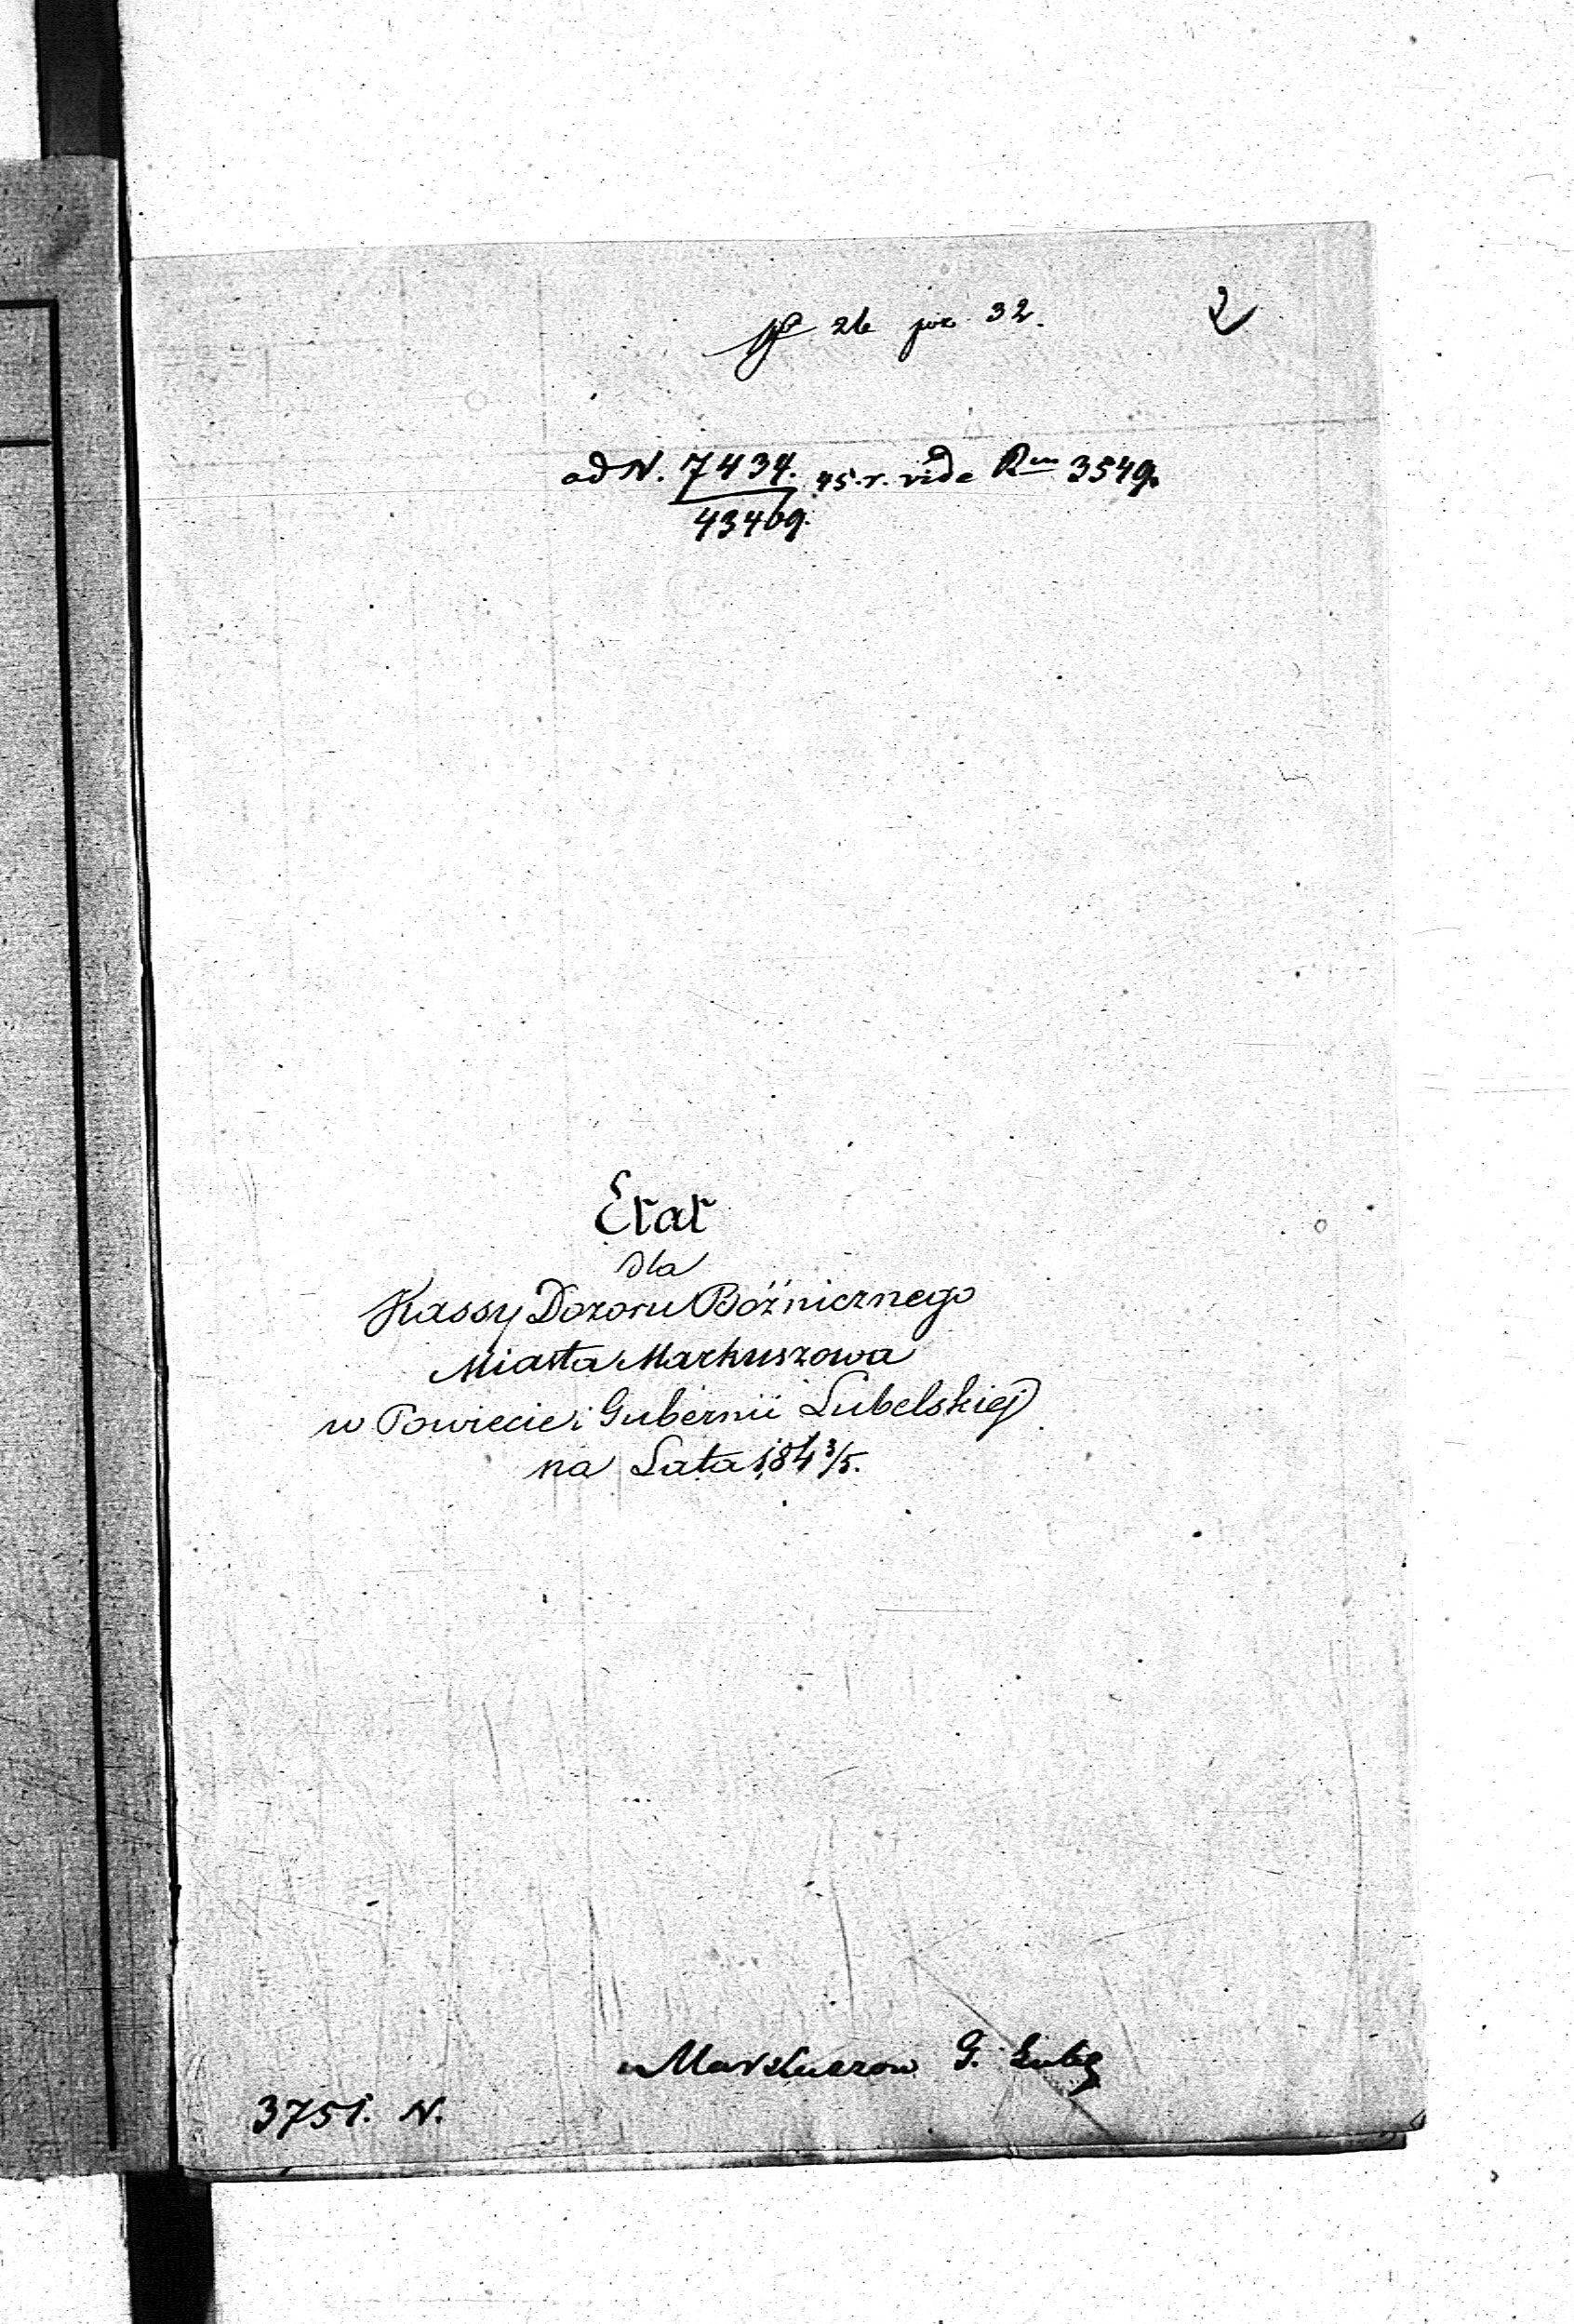 26 poz 32.
2
ad N. 7434. 45. r. vide Rm 3549.
43469.
Etat
dla
Kassy Dozoru Bóżnicznego
Miasta Markuszowa
w Powiecie i Gubernii Lubelskiej
na Lata 184 3/5.
Markuszow G. Lubel
3751. N.